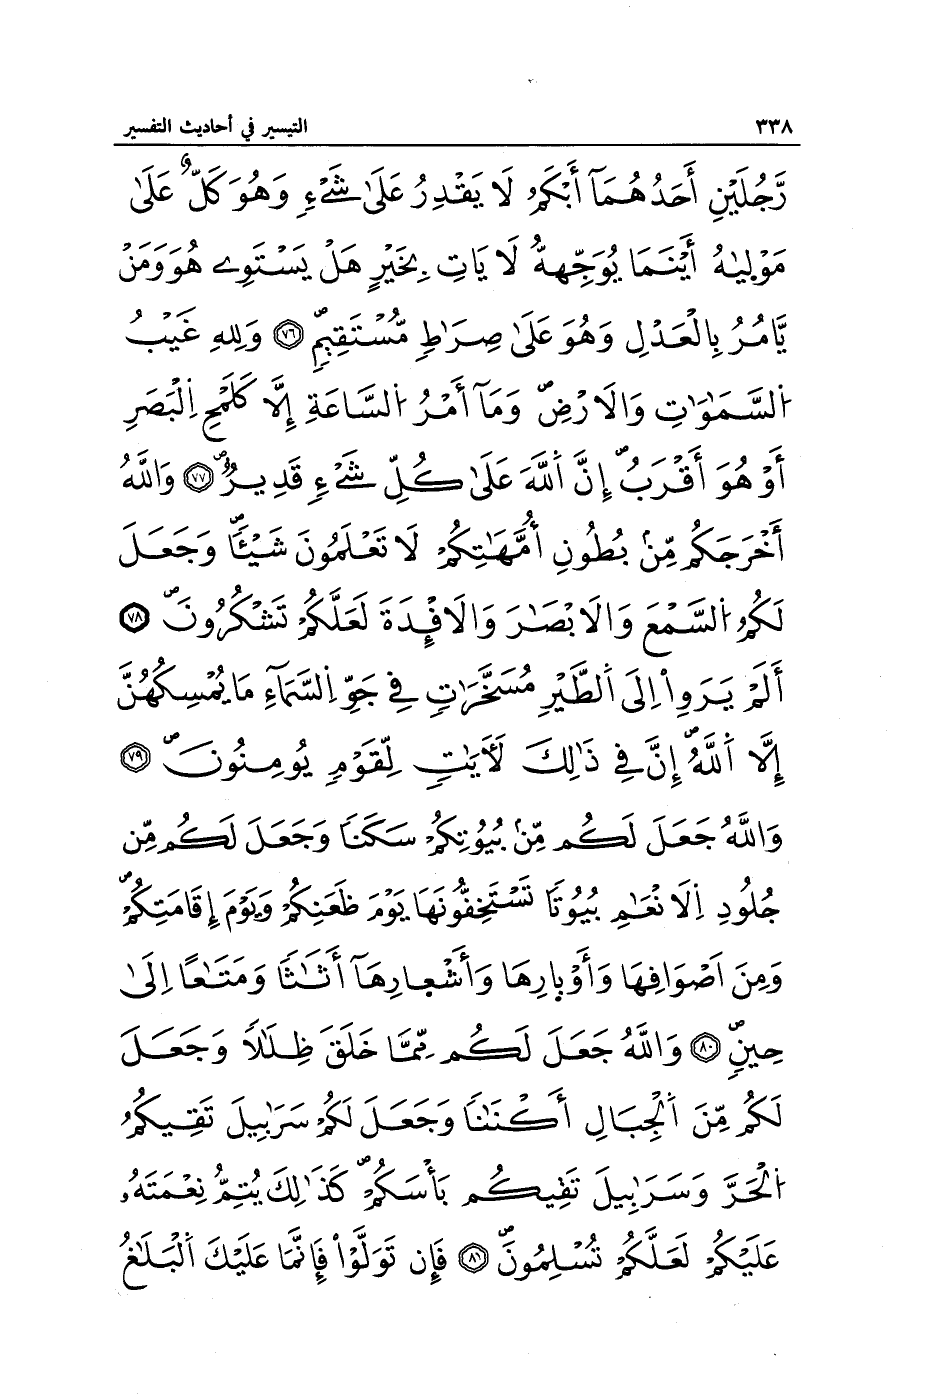 ٣٣٨ التيسير في أحاديث التفسير
رَّجُلَيْنِ أَحَدُهُمَآ أَبْكَمُ لَا يَقْدِرُ عَلَىٰ شَےْءٖ وَهُوَ كَلٌّ عَلَىٰ
مَوْلِيٰهُ أَيْنَمَا يُوَجِّههُّ لَا يَاتِ بِخَيْرٍ هَلْ يَسْتَوِے هُوَ وَمَنْ
يَّامُرُ بِالْعَدْلِ وَهُوَ عَلَىٰ صِرَٰطٖ مُّسْتَقِيمٖ ٧٦ وَلِلهِ غَيْبُ
اُ۬لسَّمَٰوَٰتِ وَالَارْضِ وَمَآ أَمْرُ اُ۬لسَّاعَةِ إِلَّا كَلَمْحِ اِ۬لْبَصَرِ
أَوْ هُوَ أَقْرَبُ إِنَّ اَ۬للَّهَ عَلَىٰ كُلِّ شَےْءٖ قَدِيرٌ ٧٧ وَاللَّهُ
أَخْرَجَكُم مِّنۢ بُطُونِ أُمَّهَٰتِكُمْ لَا تَعْلَمُونَ شَيْـٔاً وَجَعَلَ
لَكُمُ اُ۬لسَّمْعَ وَالَابْصَٰرَ وَالَافْـِٕدَةَ لَعَلَّكُمْ تَشْكُرُونَ ٧٨
أَلَمْ يَرَوِاْ اِلَى اَ۬لطَّيْرِ مُسَخَّرَٰتٖ فِے جَوِّ اِ۬لسَّمَآءِ مَا يُمْسِكُهُنَّ
إِلَّا اَ۬للَّهُ إِنَّ فِے ذَٰلِكَ لَأٓيَٰتٖ لِّقَوْمٖ يُومِنُونَ ٧٩
وَاللَّهُ جَعَلَ لَكُم مِّنۢ بُيُوتِكُمْ سَكَناً وَجَعَلَ لَكُم مِّن
جُلُودِ اِ۬لَانْعَٰمِ بُيُوتاً تَسْتَخِفُّونَهَا يَوْمَ ظَعَنِكُمْ وَيَوْمَ إِقَامَتِكُمْ
وَمِنَ اَصْوَافِهَا وَأَوْبارِهَا وَأَشْعِارِهَآ أَثَٰثاً وَمَتَٰعاً اِلَىٰ
حِينٖ ٨٠ وَاللَّهُ جَعَلَ لَكُم مِّمَّا خَلَقَ ظِلَٰلاً وَجَعَلَ
لَكُم مِّنَ اَ۬لْجِبَالِ أَكْنَٰناً وَجَعَلَ لَكُمْ سَرَٰبِيلَ تَقِيكُمُ
اُ۬لْحَرَّ وَسَرَٰبِيلَ تَقِيكُم بَأْسَكُمْ كَذَٰلِكَ يُتِمُّ نِعْمَتَهُۥ
عَلَيْكُمْ لَعَلَّكُمْ تُسْلِمُونَ ٨١ فَإِن تَوَلَّوْاْ فَإِنَّمَا عَلَيْكَ اَ۬لْبَلَٰغُ